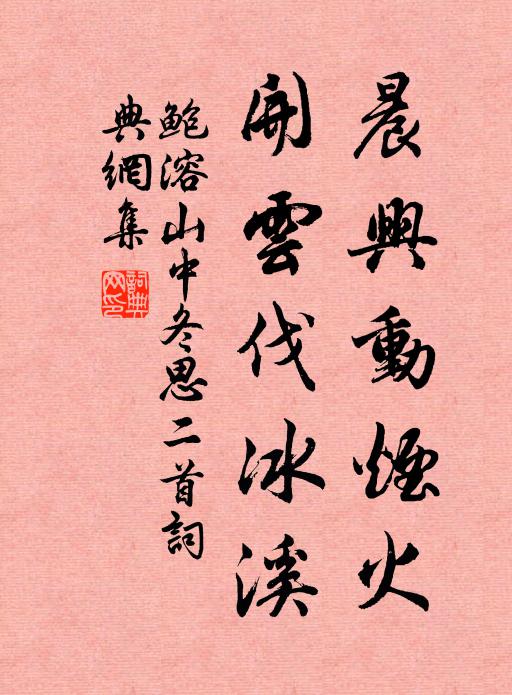 晨興動煙火
開雲伐冰溪
鮑溶山中冬思二首詞
典網集
詞典網印